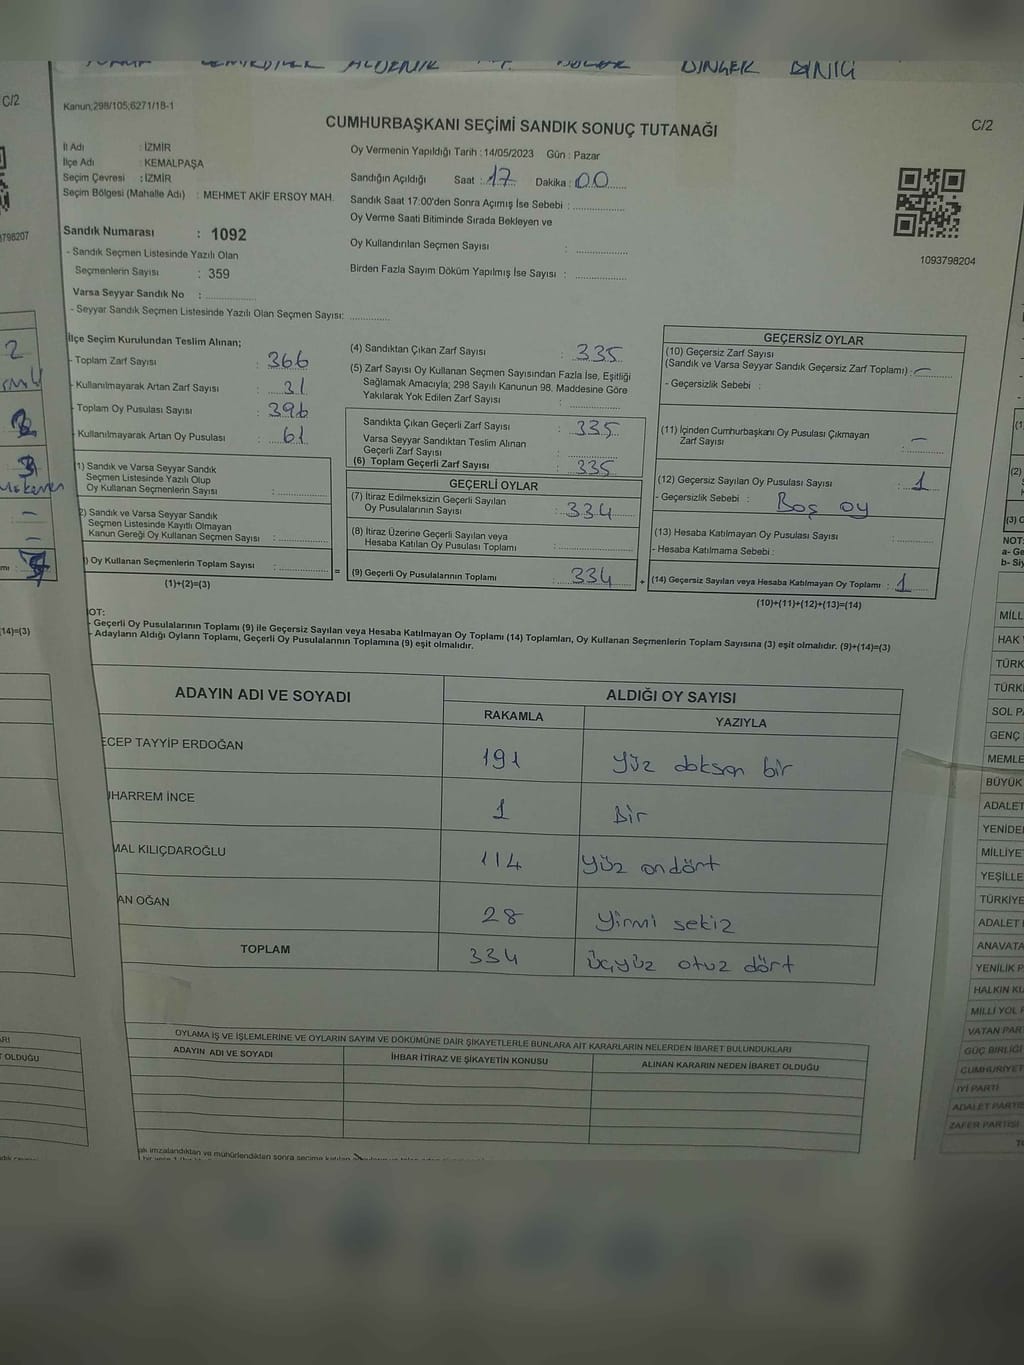 DİNÇER DİNİCİ
C/2
C/2
Kanun;298/105;6271/18-1
CUMHURBAŞKANI SEÇİMİ SANDIK SONUÇ TUTANAĞI
İl Adı : İZMİR
İlçe Adı : KEMALPAŞA
Seçim Çevresi : İZMİR
Seçim Bölgesi (Mahalle Adı) : MEHMET AKİF ERSOY MAH.
Oy Vermenin Yapıldığı Tarih : 14/05/2023 Gün : Pazar
Sandığın Açıldığı Saat : 17 Dakika : 00
Sandık Saat 17:00'den Sonra Açımış İse Sebebi :
Oy Verme Saati Bitiminde Sırada Bekleyen ve
Oy Kullandırılan Seçmen Sayısı :
Birden Fazla Sayım Döküm Yapılmış İse Sayısı :
1093798204
Sandık Numarası : 1092
- Sandık Seçmen Listesinde Yazılı Olan
Seçmenlerin Sayısı : 359
Varsa Seyyar Sandık No :
- Seyyar Sandık Seçmen Listesinde Yazılı Olan Seçmen Sayısı:
İlçe Seçim Kurulundan Teslim Alınan;
- Toplam Zarf Sayısı : 366
- Kullanılmayarak Artan Zarf Sayısı : 31
- Toplam Oy Pusulası Sayısı : 396
- Kullanılmayarak Artan Oy Pusulası : 61
1) Sandık ve Varsa Seyyar Sandık
Seçmen Listesinde Yazılı Olup
Oy Kullanan Seçmenlerin Sayısı :
2) Sandık ve Varsa Seyyar Sandık
Seçmen Listesinde Kayıtlı Olmayan
Kanun Gereği Oy Kullanan Seçmen Sayısı :
) Oy Kullanan Seçmenlerin Toplam Sayısı :
(1)+(2)=(3)
(4) Sandıktan Çıkan Zarf Sayısı : 335
(5) Zarf Sayısı Oy Kullanan Seçmen Sayısından Fazla İse, Eşitliği
Sağlamak Amacıyla; 298 Sayılı Kanunun 98. Maddesine Göre
Yakılarak Yok Edilen Zarf Sayısı :
Sandıkta Çıkan Geçerli Zarf Sayısı : 335
Varsa Seyyar Sandıktan Teslim Alınan
Geçerli Zarf Sayısı :
(6) Toplam Geçerli Zarf Sayısı : 335
GEÇERLİ OYLAR
(7) İtiraz Edilmeksizin Geçerli Sayılan
Oy Pusulalarının Sayısı : 334
(8) İtiraz Üzerine Geçerli Sayılan veya
Hesaba Katılan Oy Pusulası Toplamı :
= (9) Geçerli Oy Pusulalarının Toplamı : 334 +
GEÇERSİZ OYLAR
(10) Geçersiz Zarf Sayısı
(Sandık ve Varsa Seyyar Sandık Geçersiz Zarf Toplamı) : -
- Geçersizlik Sebebi :
(11) İçinden Cumhurbaşkanı Oy Pusulası Çıkmayan
Zarf Sayısı : -
(12) Geçersiz Sayılan Oy Pusulası Sayısı : 1
- Geçersizlik Sebebi : Boş oy
(13) Hesaba Katılmayan Oy Pusulası Sayısı :
- Hesaba Katılmama Sebebi :
(14) Geçersiz Sayılan veya Hesaba Katılmayan Oy Toplamı : 1
(10)+(11)+(12)+(13)=(14)
OT:
- Geçerli Oy Pusulalarının Toplamı (9) ile Geçersiz Sayılan veya Hesaba Katılmayan Oy Toplamı (14) Toplamları, Oy Kullanan Seçmenlerin Toplam Sayısına (3) eşit olmalıdır. (9)+(14)=(3)
- Adayların Aldığı Oyların Toplamı, Geçerli Oy Pusulalarının Toplamına (9) eşit olmalıdır.
ADAYIN ADI VE SOYADI
ALDIĞI OY SAYISI
RAKAMLA YAZIYLA
ECEP TAYYİP ERDOĞAN 191 Yüz doksan bir
UHARREM İNCE 1 Bir
MAL KILIÇDAROĞLU 114 yüz ondört
AN OĞAN 28 Yirmi sekiz
TOPLAM 334 üçyüz otuz dört
OYLAMA İŞ VE İŞLEMLERİNE VE OYLARIN SAYIM VE DÖKÜMÜNE DAİR ŞİKAYETLERLE BUNLARA AİT KARARLARIN NELERDEN İBARET BULUNDUKLARI
ADAYIN ADI VE SOYADI İHBAR İTİRAZ VE ŞİKAYETİN KONUSU ALINAN KARARIN NEDEN İBARET OLDUĞU
798207
14)=(3)
T OLDUĞU
NOT:
a- Ge
b- Siy
MİLL
HAK
TÜRK
TÜRKİ
SOL P
GENÇ
MEMLE
BÜYÜK
ADALET
YENİDE
MİLLİYE
YEŞİLLE
TÜRKİYE
ADALET
ANAVATA
YENİLİK P
HALKIN KU
MİLLİ YOL P
VATAN PAR
GÜÇ BİRLİĞİ
CUMHURİYET
İYİ PARTİ
ADALET PARTİS
ZAFER PARTİSİ